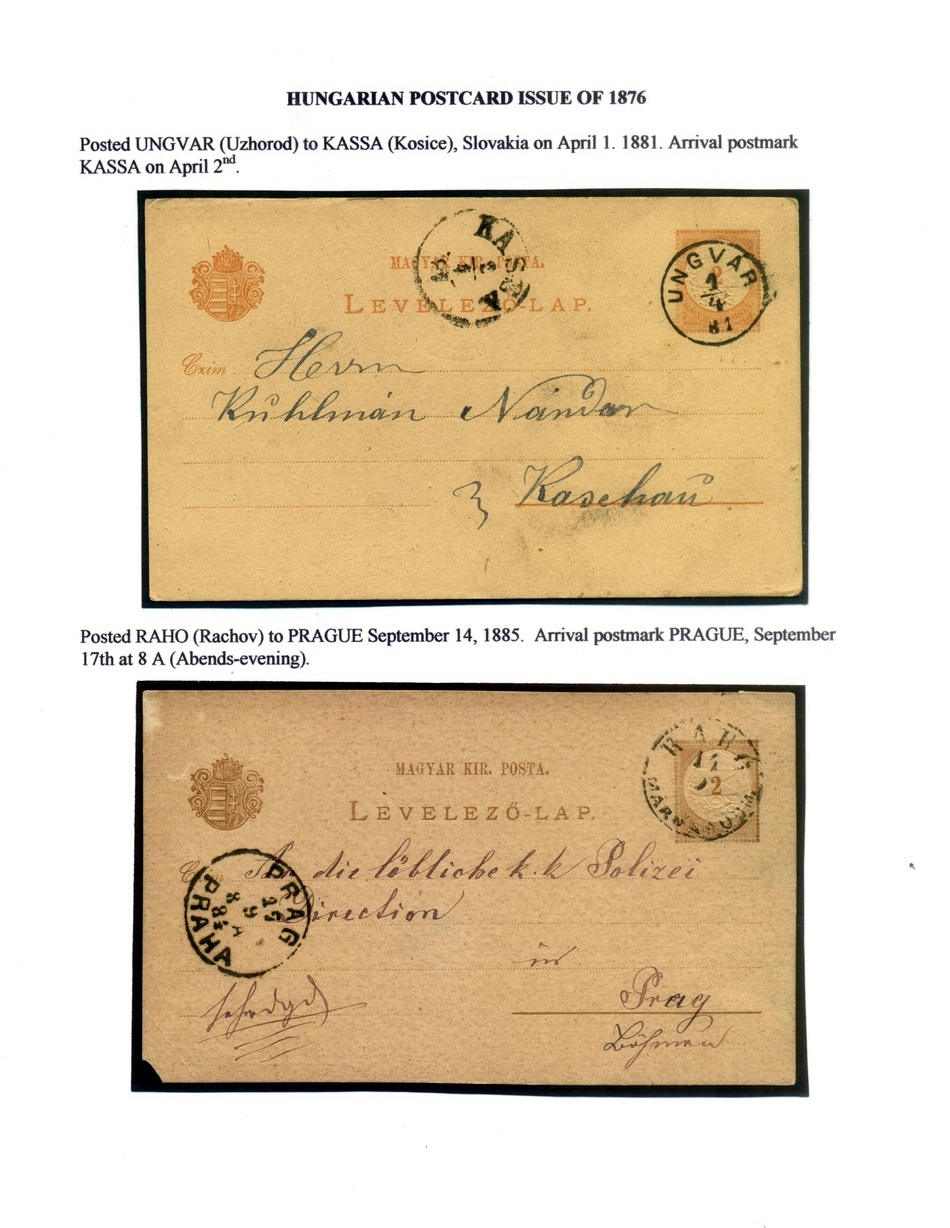 HUNGARIAN POSTCARD ISSUE OF 1876
Posted UNGVAR (Uzhorod) to KASSA (Kosice), Slovakia on April 1. 1881. Arrival postmark
KASSA on April 2nd.
KASSA
MAGYAR KIR. POSTA.
LEVELEZŐ-LAP.
UNGVÁR
2
1
4
81
Czim
Herrn
Kuhlmán Nándor
Kaschau
Posted RAHO (Rachov) to PRAGUE September 14, 1885. Arrival postmark PRAGUE, September
17th at 8 A (Abends-evening).
MAGYAR KIR. POSTA.
LEVELEZŐ-LAP.
2
An die löbliche k. k Polizei
Direction
PRAG
17
9
8 A
PRAHA
in
Prag
Böhmen